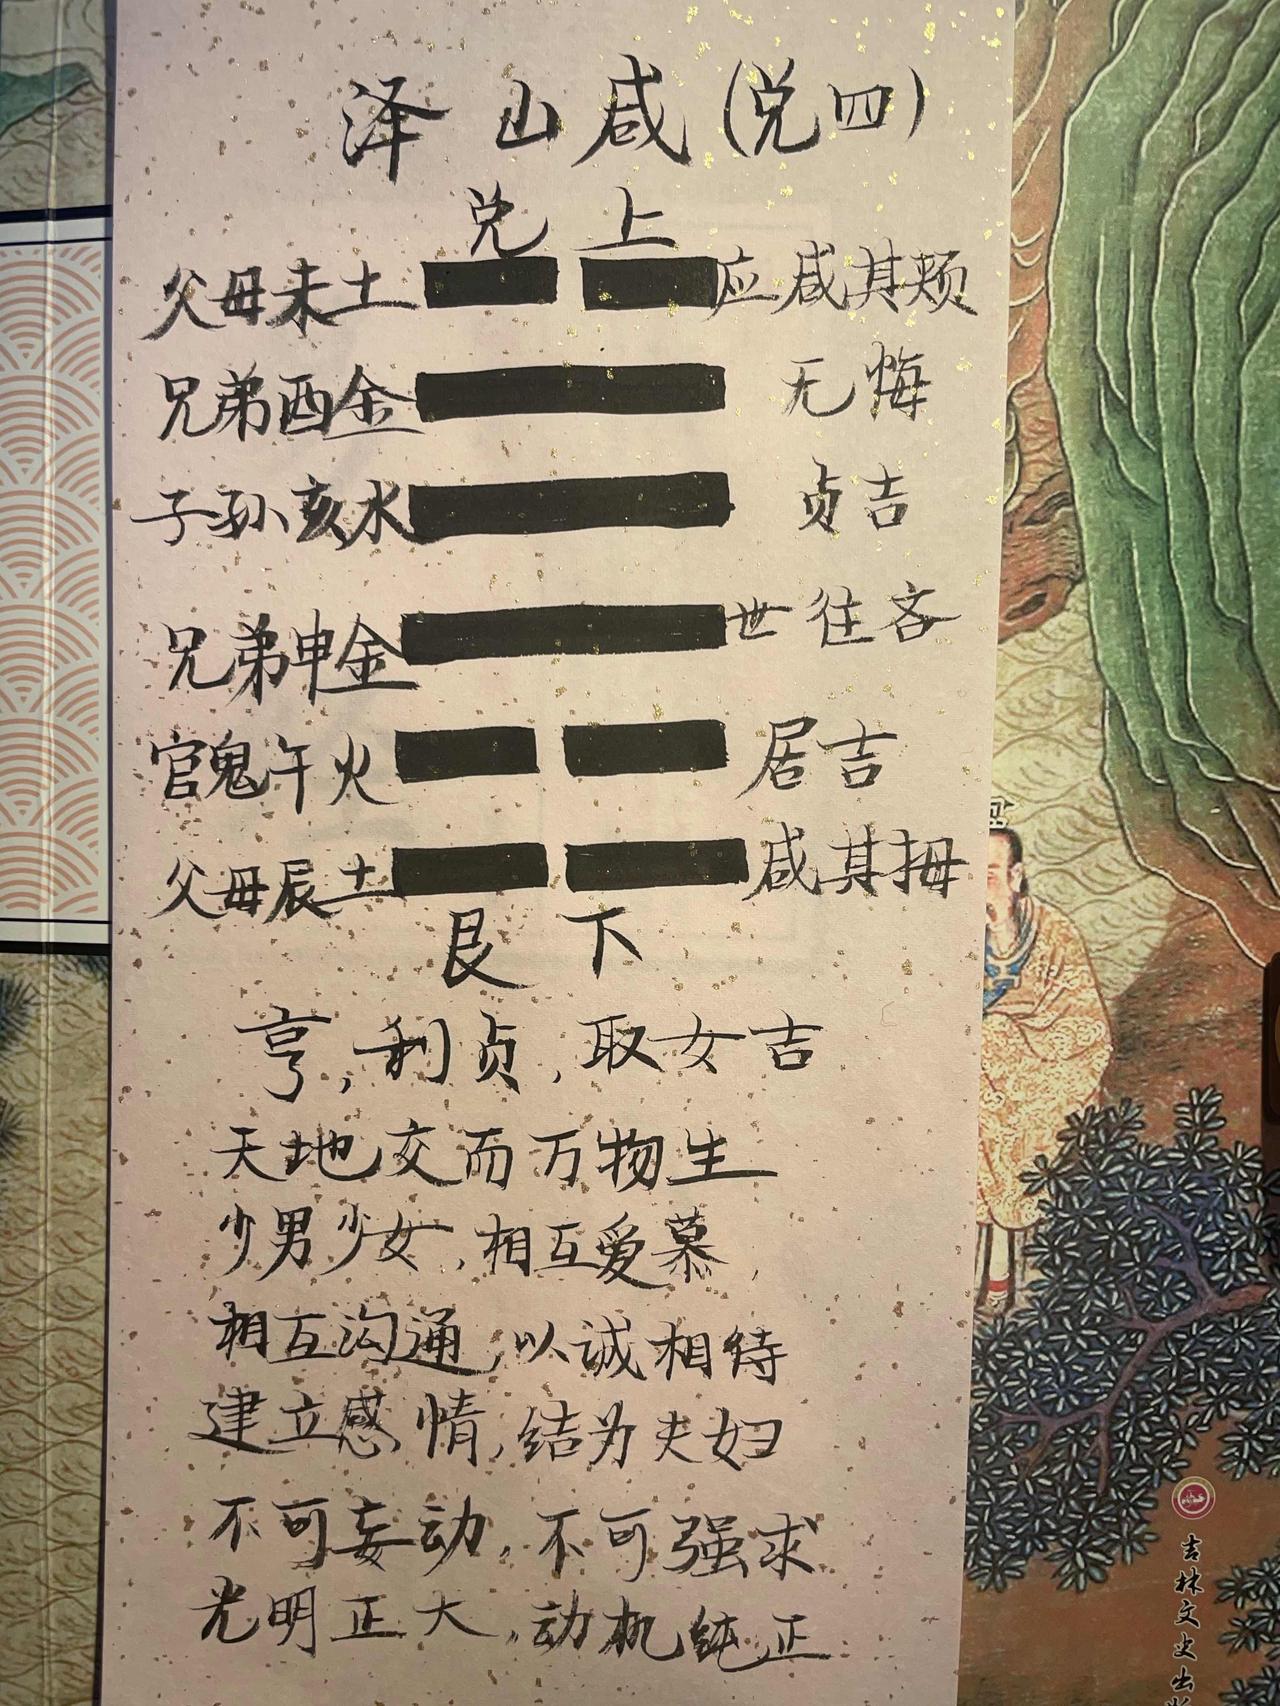 泽山咸(兑四)
兑 上
父母未土 应 咸其颊
兄弟酉金 无悔
子孙亥水 贞吉
兄弟申金 世 往吝
官鬼午火 居吉
父母辰土 咸其拇
艮 下
亨,利贞,取女吉
天地交而万物生
少男少女,相互爱慕,
相互沟通,以诚相待
建立感情,结为夫妇
不可妄动,不可强求
光明正大,动机纯正
吉林文史出